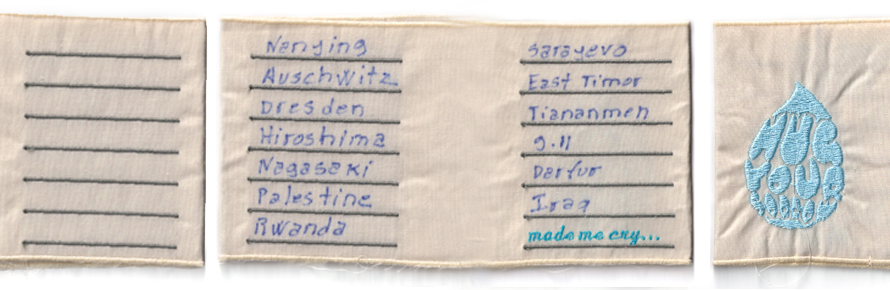 Nanjing
Auschwitz
Dresden
Hiroshima
Nagasaki
Palestine
Rwanda
Sarayevo
East Timor
Tiananmen
9.11
Darfur
Iraq
made me cry...